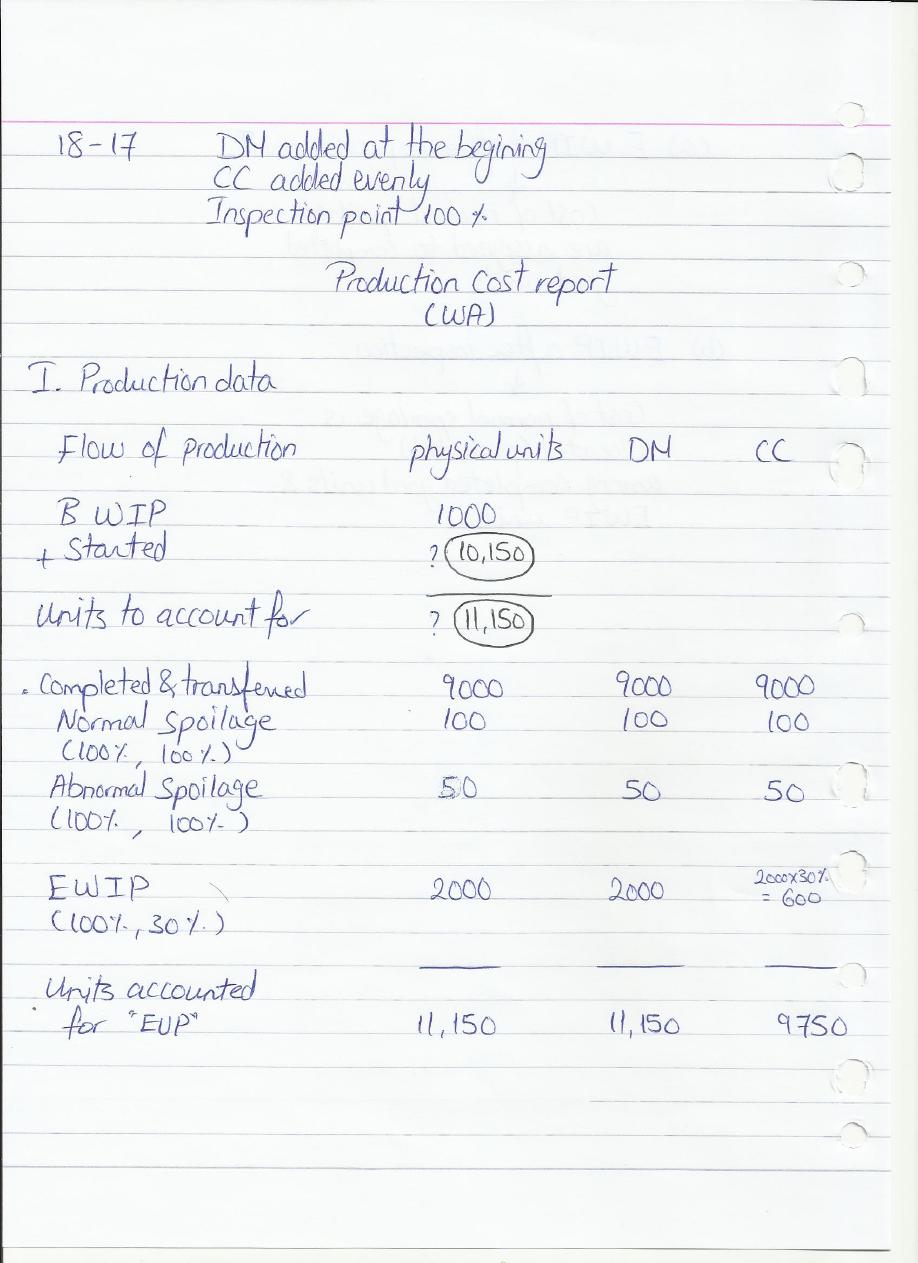 18-17 DM added at the begining
CC added evenly
Inspection point 100 %
Production Cost report
(WA)
I. Production data
Flow of production physical units DM CC
B WIP 1000
+ Started ? 10,150
Units to account for ? 11,150
. Completed & transferred 9000 9000 9000
Normal Spoilage 100 100 100
(100%, 100%)
Abnormal Spoilage 50 50 50
(100%, 100%)
2000x30%
EWIP 2000 2000 = 600
(100%, 30%)
Units accounted
for "EUP" 11,150 11,150 9750